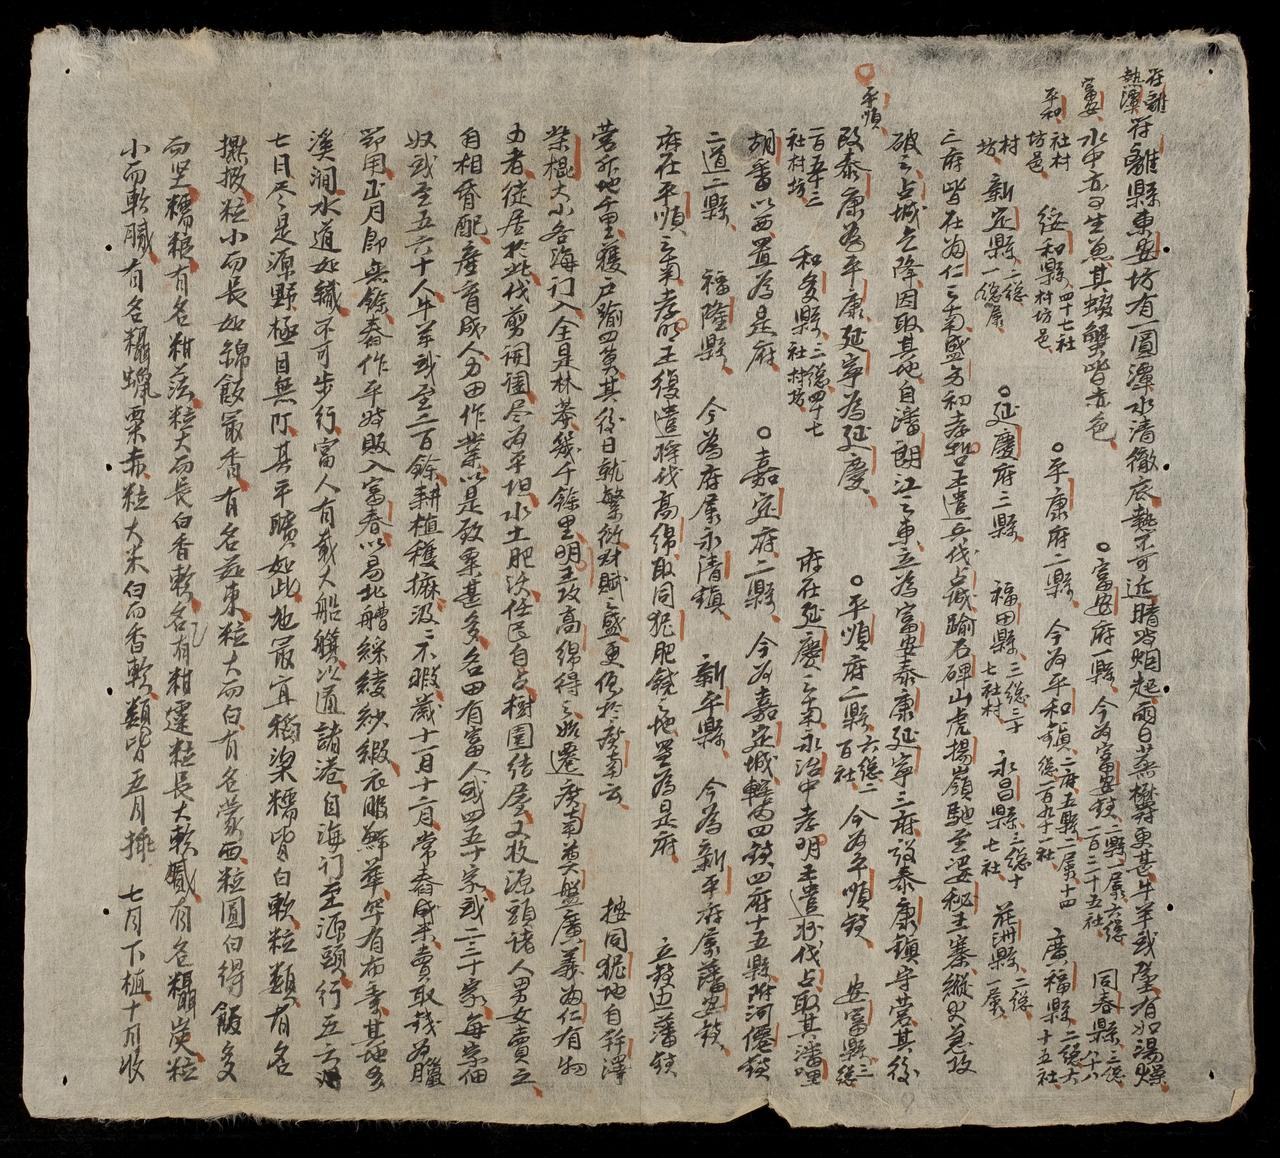 符離
熱潭
符離縣東安坊有一圓潭水清徹底熱不可近晴時烟起雨日蒸欎尋更甚牛羊或墮有如湯燥
富安
水中亦可生魚其蝦蟹皆赤色
○富安府一縣
今為富安鎮二縣一屬六總
一百二十五社
同春縣三總
八十八
社村
坊邑
平和
綏和縣四十七社
村坊邑
○平康府二縣
今為平和鎮二府五縣二屬十四
總一百九十一社
廣福縣二總六
十五社
村
坊
新定縣二總
一屬
○延慶府三縣
福田縣二總三十
七社村
永昌縣三總十
七社
花洲縣二總
一屬
三府皆在為仁之南盛方初孝哲王遣兵伐占城踰石碑山虎揚嶺馳至婆秘王寨縱火急攻
破之占城乞降因取其地自潘朗江之東立為富安泰康延寧三府設泰康鎮守營其後
○平順
改泰康為平康延寧為延慶
○平順府二縣六總二
百社
今為平順鎮
安富縣三
總
一百五十三
社村坊
和多縣三總四十七
社村坊
府在延慶之南永治中孝明王遣將伐占取其潘哩
胡番以西置為是府
○嘉定府二縣
今為嘉定城轄內四鎮四府十五縣附河僊鎮
二道二縣
福隆縣
今為府屬永清鎮
新平縣
今為新平府屬藩安鎮
府在平順之南孝明王復遣將伐高綿取同狔肥饒之地置為是府
立鎮边藩鎮
營斥地千里獲戶踰四萬其後日就繁衍財賦之盛更倍於廣南云
按同狔地自芹澤
柴棍大小各海门入全是林莽幾千餘里明王攻高綿得之始遷廣南奠盤廣義為仁有物
力者徒居於此伐剪開闢尽為平坦水土肥沃任民自占樹園結屋又收源頭诸人男女賣之
自相昏配產育成人力田作業以是致粟甚多各田有富人或四五十家或二三十家每家佃
奴或至五六十人牛羊或至三百餘耕植穫擵汲汲不暇歲十一月十二月常舂成米賣取錢為臘
節用正月即無餘舂作平時販入富春以易北艚綵綾紗緞衣服鮮華罕有布素其地多
溪澗水道如織不可步行富人有載大船艤以通諸港自海门至源頭行五六
七日尽是源野極目無阡其平曠如此地最宜稻梁糯皆白軟粒類有名
擵掇粒小而長如綿飯最香有名茲東粒大而白有名蒙西粒圓白得飯多
而坚糯粮有名柑茲粒大而長白香軟名有柑暹粒長大軟膩有名糯炭粒
小而軟膩有名糯蝋粟赤粒大米白而香軟類皆五月插七月下植十月收